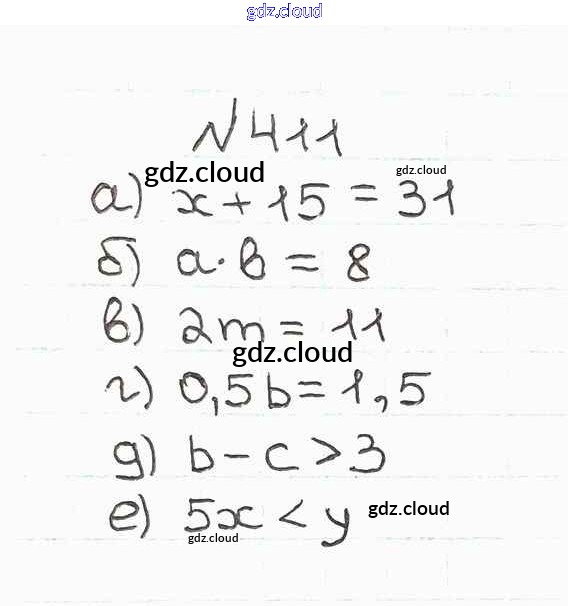 gdz.cloud
№411
gdz.cloud
gdz.cloud
а) x + 15 = 31
б) a · b = 8
в) 2m = 11
gdz.cloud
г) 0,5b = 1,5
д) b - c > 3
е) 5x < y
gdz.cloud
gdz.cloud